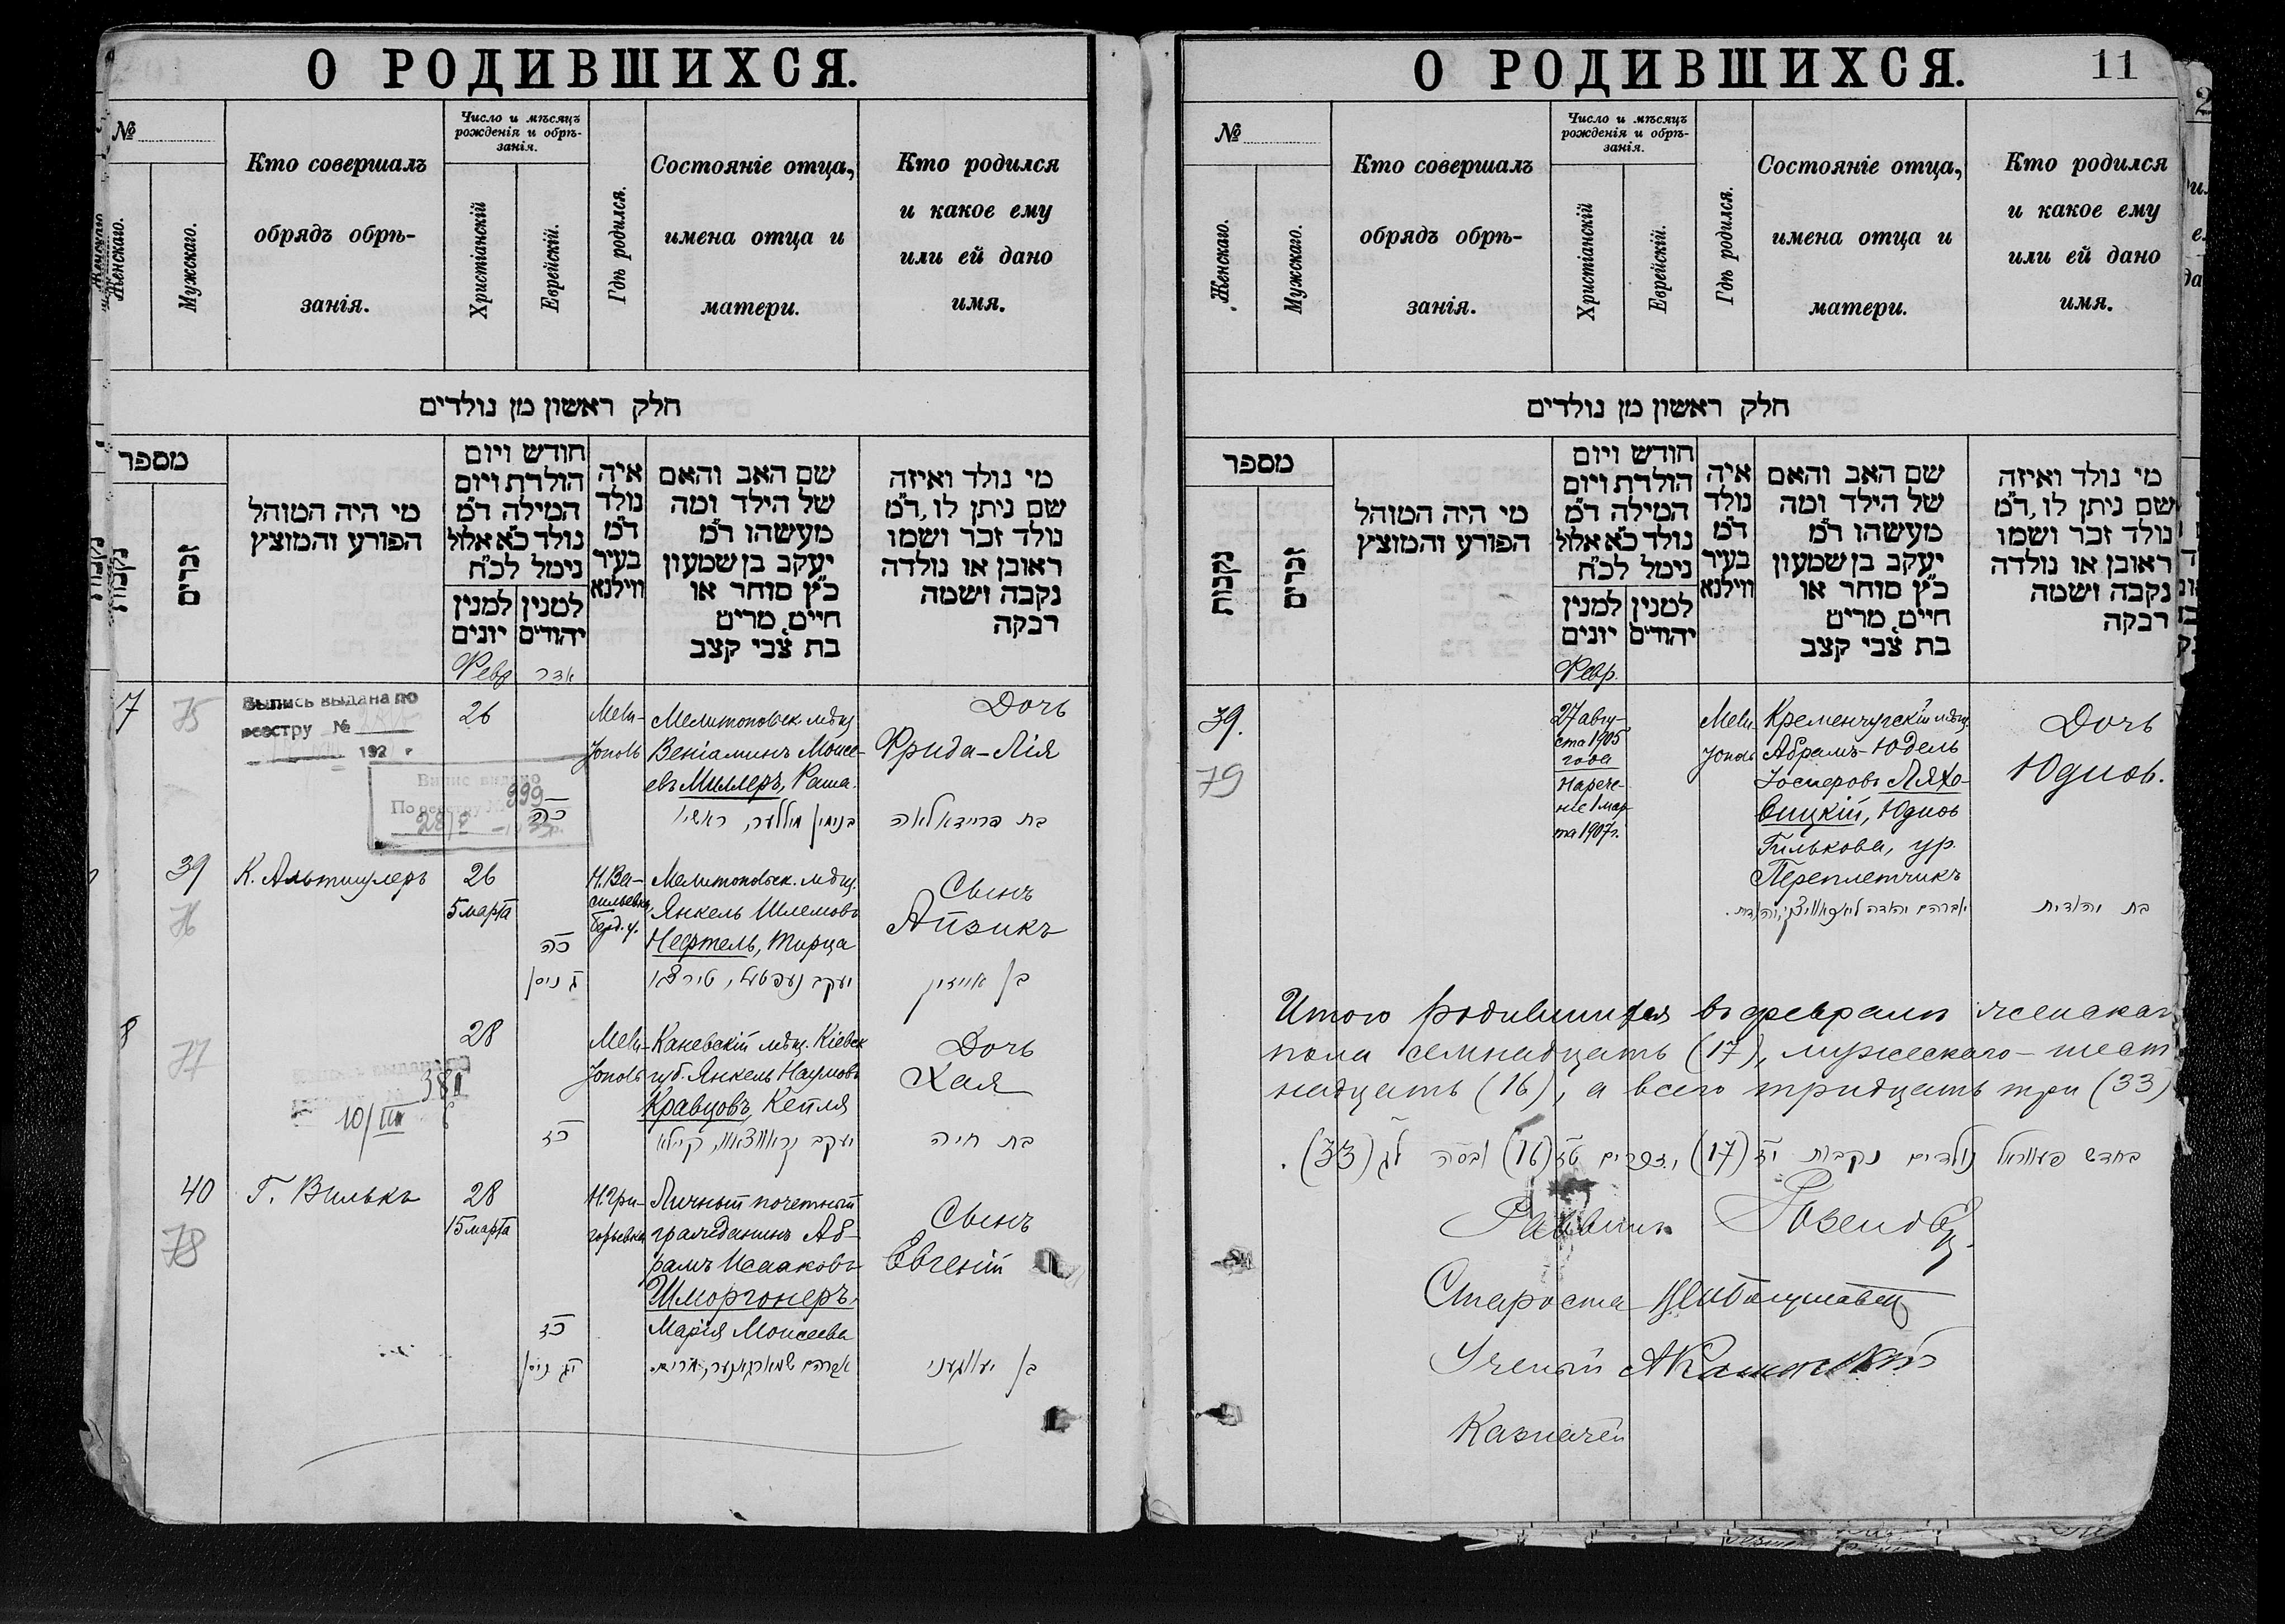 О РОДИВШИХСЯ.
№
Женскаго.
Мужскаго.
Кто совершалъ
обрядъ обрѣ-
занія.
Число и мѣсяцъ
рожденія и обрѣ-
занія.
Христіанскій
Еврейскій.
Гдѣ родился.
Состояніе отца,
имена отца и
матери.
Кто родился
и какое ему
или ей дано
имя.
חלק ראשון מן נולדים
מספר
נקבות
זכרים
מי היה המוהל
הפורע והמוצץ
חודש ויום
הולדת ויום
המילה ד״מ
נולד כ״א אלול
נימל לכ״ח
למנין יונים
למנין יהודים
איה
נולד
ד״מ
בעיר
ווילנא
שם האב והאם
של הילד ומה
מעשהו ד״מ
יעקב בן שמעון
כ״ץ סוחר או
חיים, מרים
בת צבי קצב
מי נולד ואיזה
שם ניתן לו, ד״מ
נולד זכר ושמו
ראובן או נולדה
נקבה ושמה
רבקה
Февр
אדר
7
75
Выпись выдана по
реестру №
192 г
Випис видано
По реестру № 999
26
כה
Мели-
тополь
Мелитопольск. мѣщ.
Веніаминъ Моисе-
евъ Миллеръ, Раша.
בנימין מיללער, ראשי
Дочь
Фрида-Лія
בת פרידא לאה
39
76
К. Альтшулеръ
26
5 марта
כה
ג ניסן
Н. Ва-
сильевка,
Берд. у.
Мелитопольск. мѣщ.
Янкель Шлемовъ
Нефтель, Тирца
יעקב נעפטעל, טירצי
Сынъ
Айзикъ
בן אייזיק
8
77
381
10/III
28
כז
Мели-
тополь
Каневскій мѣщ. Кіевск
губ. Янкель Наумовъ
Кравцовъ, Кейля
יעקב קראווצאוו, קיילא
Дочь
Хая
בת חיה
40
78
Г. Вилькъ
28
15 марта
כז
יג ניסן
Н. Гри-
горьевка
Личный почетный
гражданинъ Аб-
рамъ Исааковъ
Шморгонеръ,
Марія Моисеева
אברהם שמארגאנער, מרים.
Сынъ
Евгеній
בן יעווגעני
О РОДИВШИХСЯ.
11
№
Женскаго.
Мужскаго.
Кто совершалъ
обрядъ обрѣ-
занія.
Число и мѣсяцъ
рожденія и обрѣ-
занія.
Христіанскій
Еврейскій.
Гдѣ родился.
Состояніе отца,
имена отца и
матери.
Кто родился
и какое ему
или ей дано
имя.
חלק ראשון מן נולדים
מספר
נקבות
זכרים
מי היה המוהל
הפורע והמוצץ
חודש ויום
הולדת ויום
המילה ד״מ
נולד כ״א אלול
נימל לכ״ח
למנין יונים
למנין יהודים
איה
נולד
ד״מ
בעיר
ווילנא
שם האב והאם
של הילד ומה
מעשהו ד״מ
יעקב בן שמעון
כ״ץ סוחר או
חיים, מרים
בת צבי קצב
מי נולד ואיזה
שם ניתן לו, ד״מ
נולד זכר ושמו
ראובן או נולדה
נקבה ושמה
רבקה
Февр.
39.
79
27 авгу-
ста 1905
года
Нарече-
ніе 1 мар-
та 1907 г.
Мели-
тополь
Кременчугскій мѣщ.
Абрамъ-Юдель
Іосперовъ Ляхо-
вицкій, Юдиѳь
Гилькова, ур.
Переплетчикъ
אברהם יהודה
Дочь
Юдиѳь.
בת יהודית
Итого родившихся въ февралѣ женскаго
пола семнадцать (17), мужескаго - шест
надцать (16), а всего тридцать три (33)
בחדש פעווראל נולדים נקבות יז (17) וזכרים טז (16) ובסה לג (33).
Раввинъ
Староста
Ученый
Казначей